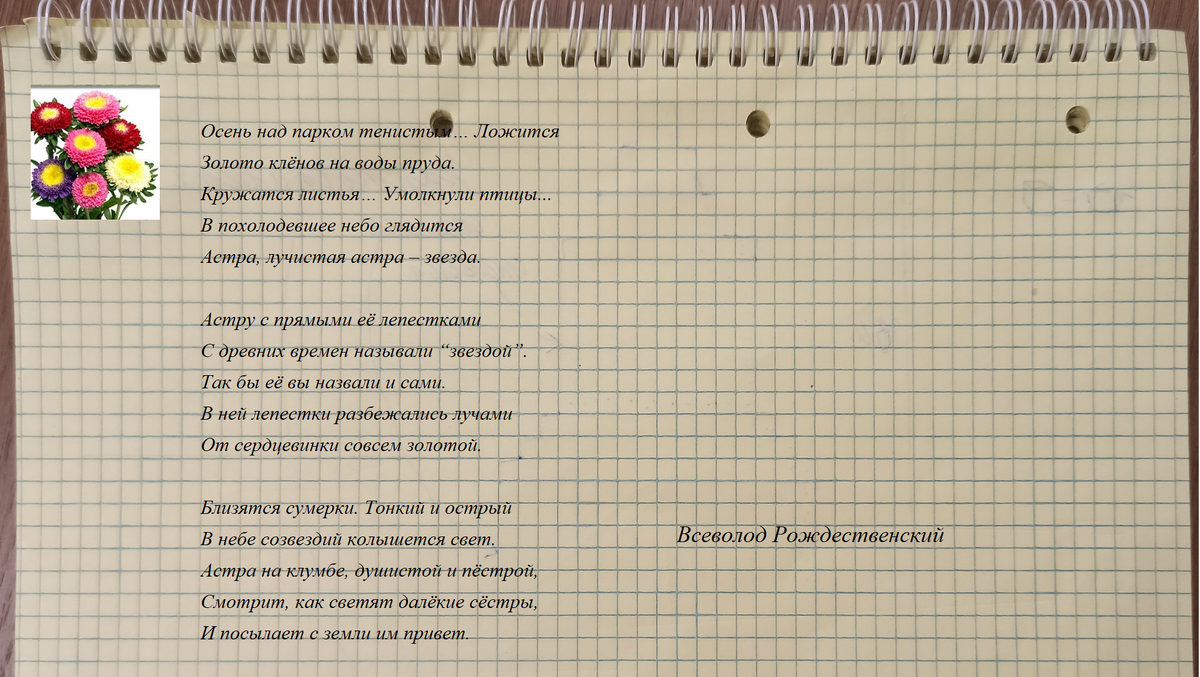 Осень над парком тенистым… Ложится
Золото клёнов на воды пруда.
Кружатся листья… Умолкнули птицы…
В похолодевшее небо глядится
Астра, лучистая астра – звезда.
Астру с прямыми её лепестками
С древних времен называли “звездой”.
Так бы её вы назвали и сами.
В ней лепестки разбежались лучами
От сердцевинки совсем золотой.
Близятся сумерки. Тонкий и острый
В небе созвездий колышется свет.
Астра на клумбе, душистой и пёстрой,
Смотрит, как светят далёкие сёстры,
И посылает с земли им привет.
Всеволод Рождественский